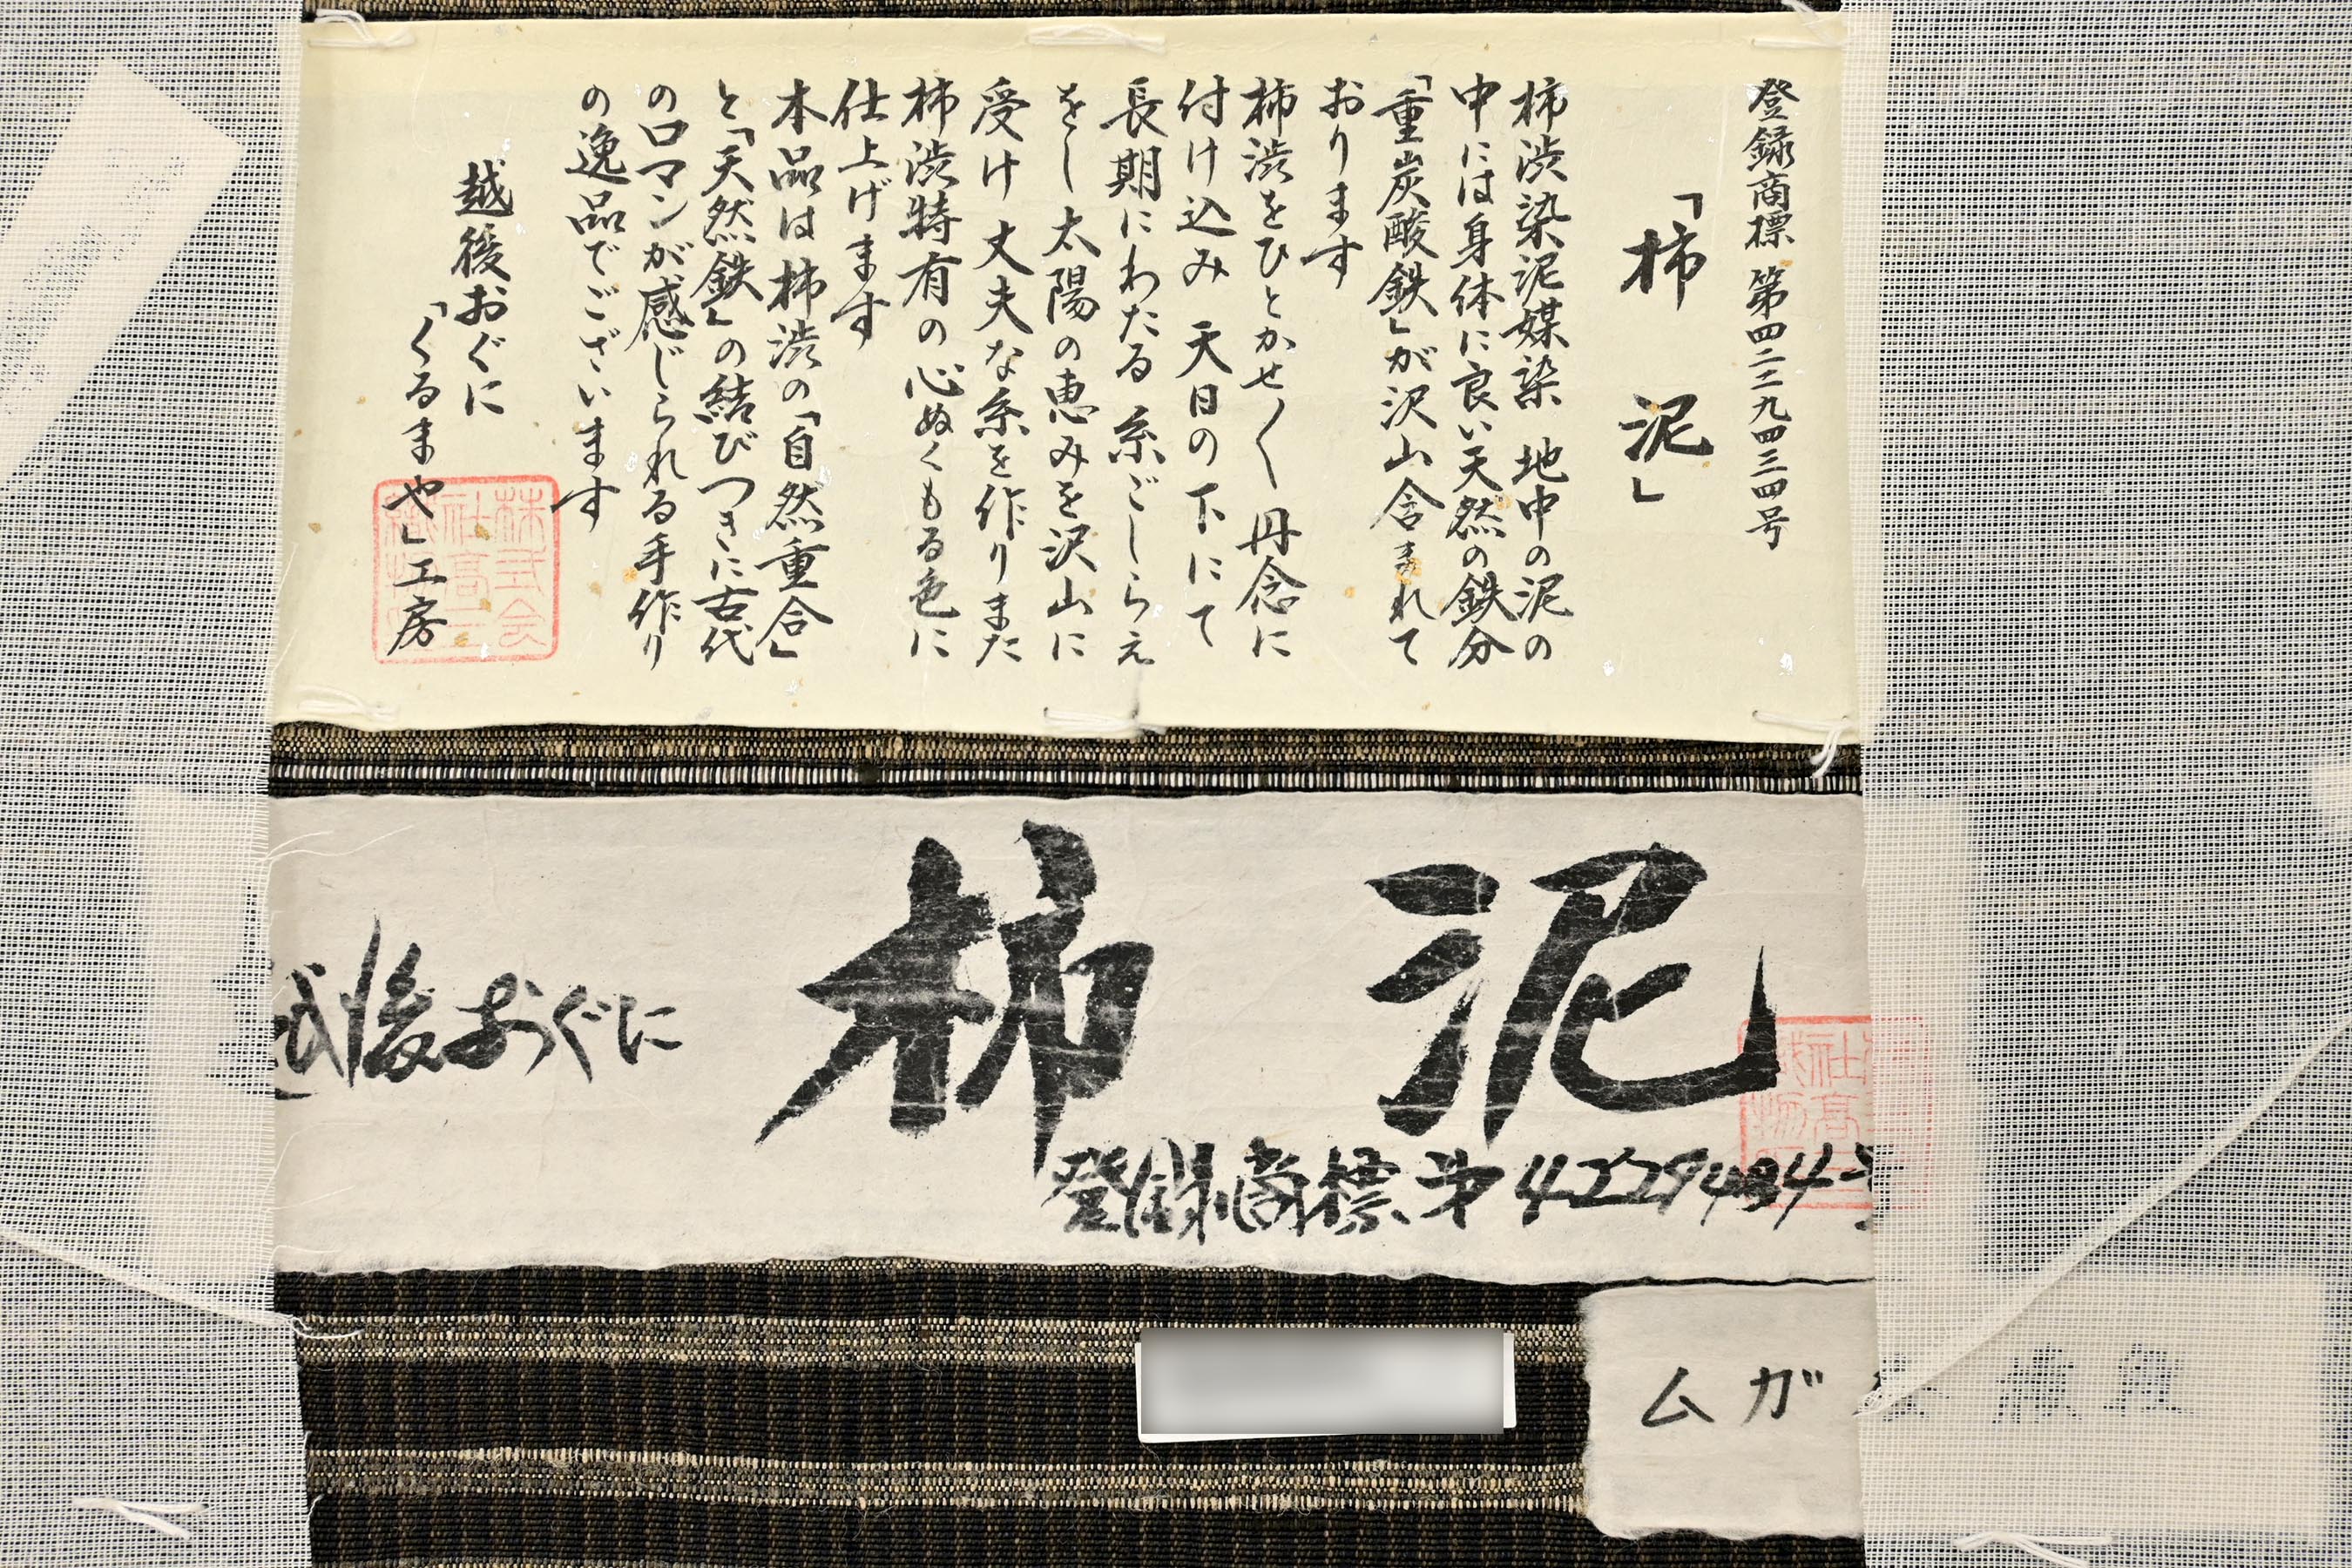 登録商標 第四二二九四三四号
「柿 泥」
柿渋染泥媒染 地中の泥の
中には身体に良い天然の鉄分
「重炭酸鉄」が沢山含まれて
おります
柿渋をひとかせ〱 丹念に
付け込み 天日の下にて
長期にわたる 糸ごしらえ
をし 太陽の恵みを沢山に
受け 丈夫な糸を作りまた
柿渋特有の心ぬくもる色に
仕上げます
本品は柿渋の「自然重合」
と「天然鉄」の結びつきに古代
のロマンが感じられる手作り
の逸品でございます
越後おぐに
「くるまや」工房
株式会
社高三
柿 泥
越後おぐに
登録商標第4229434号
社高
ムガ